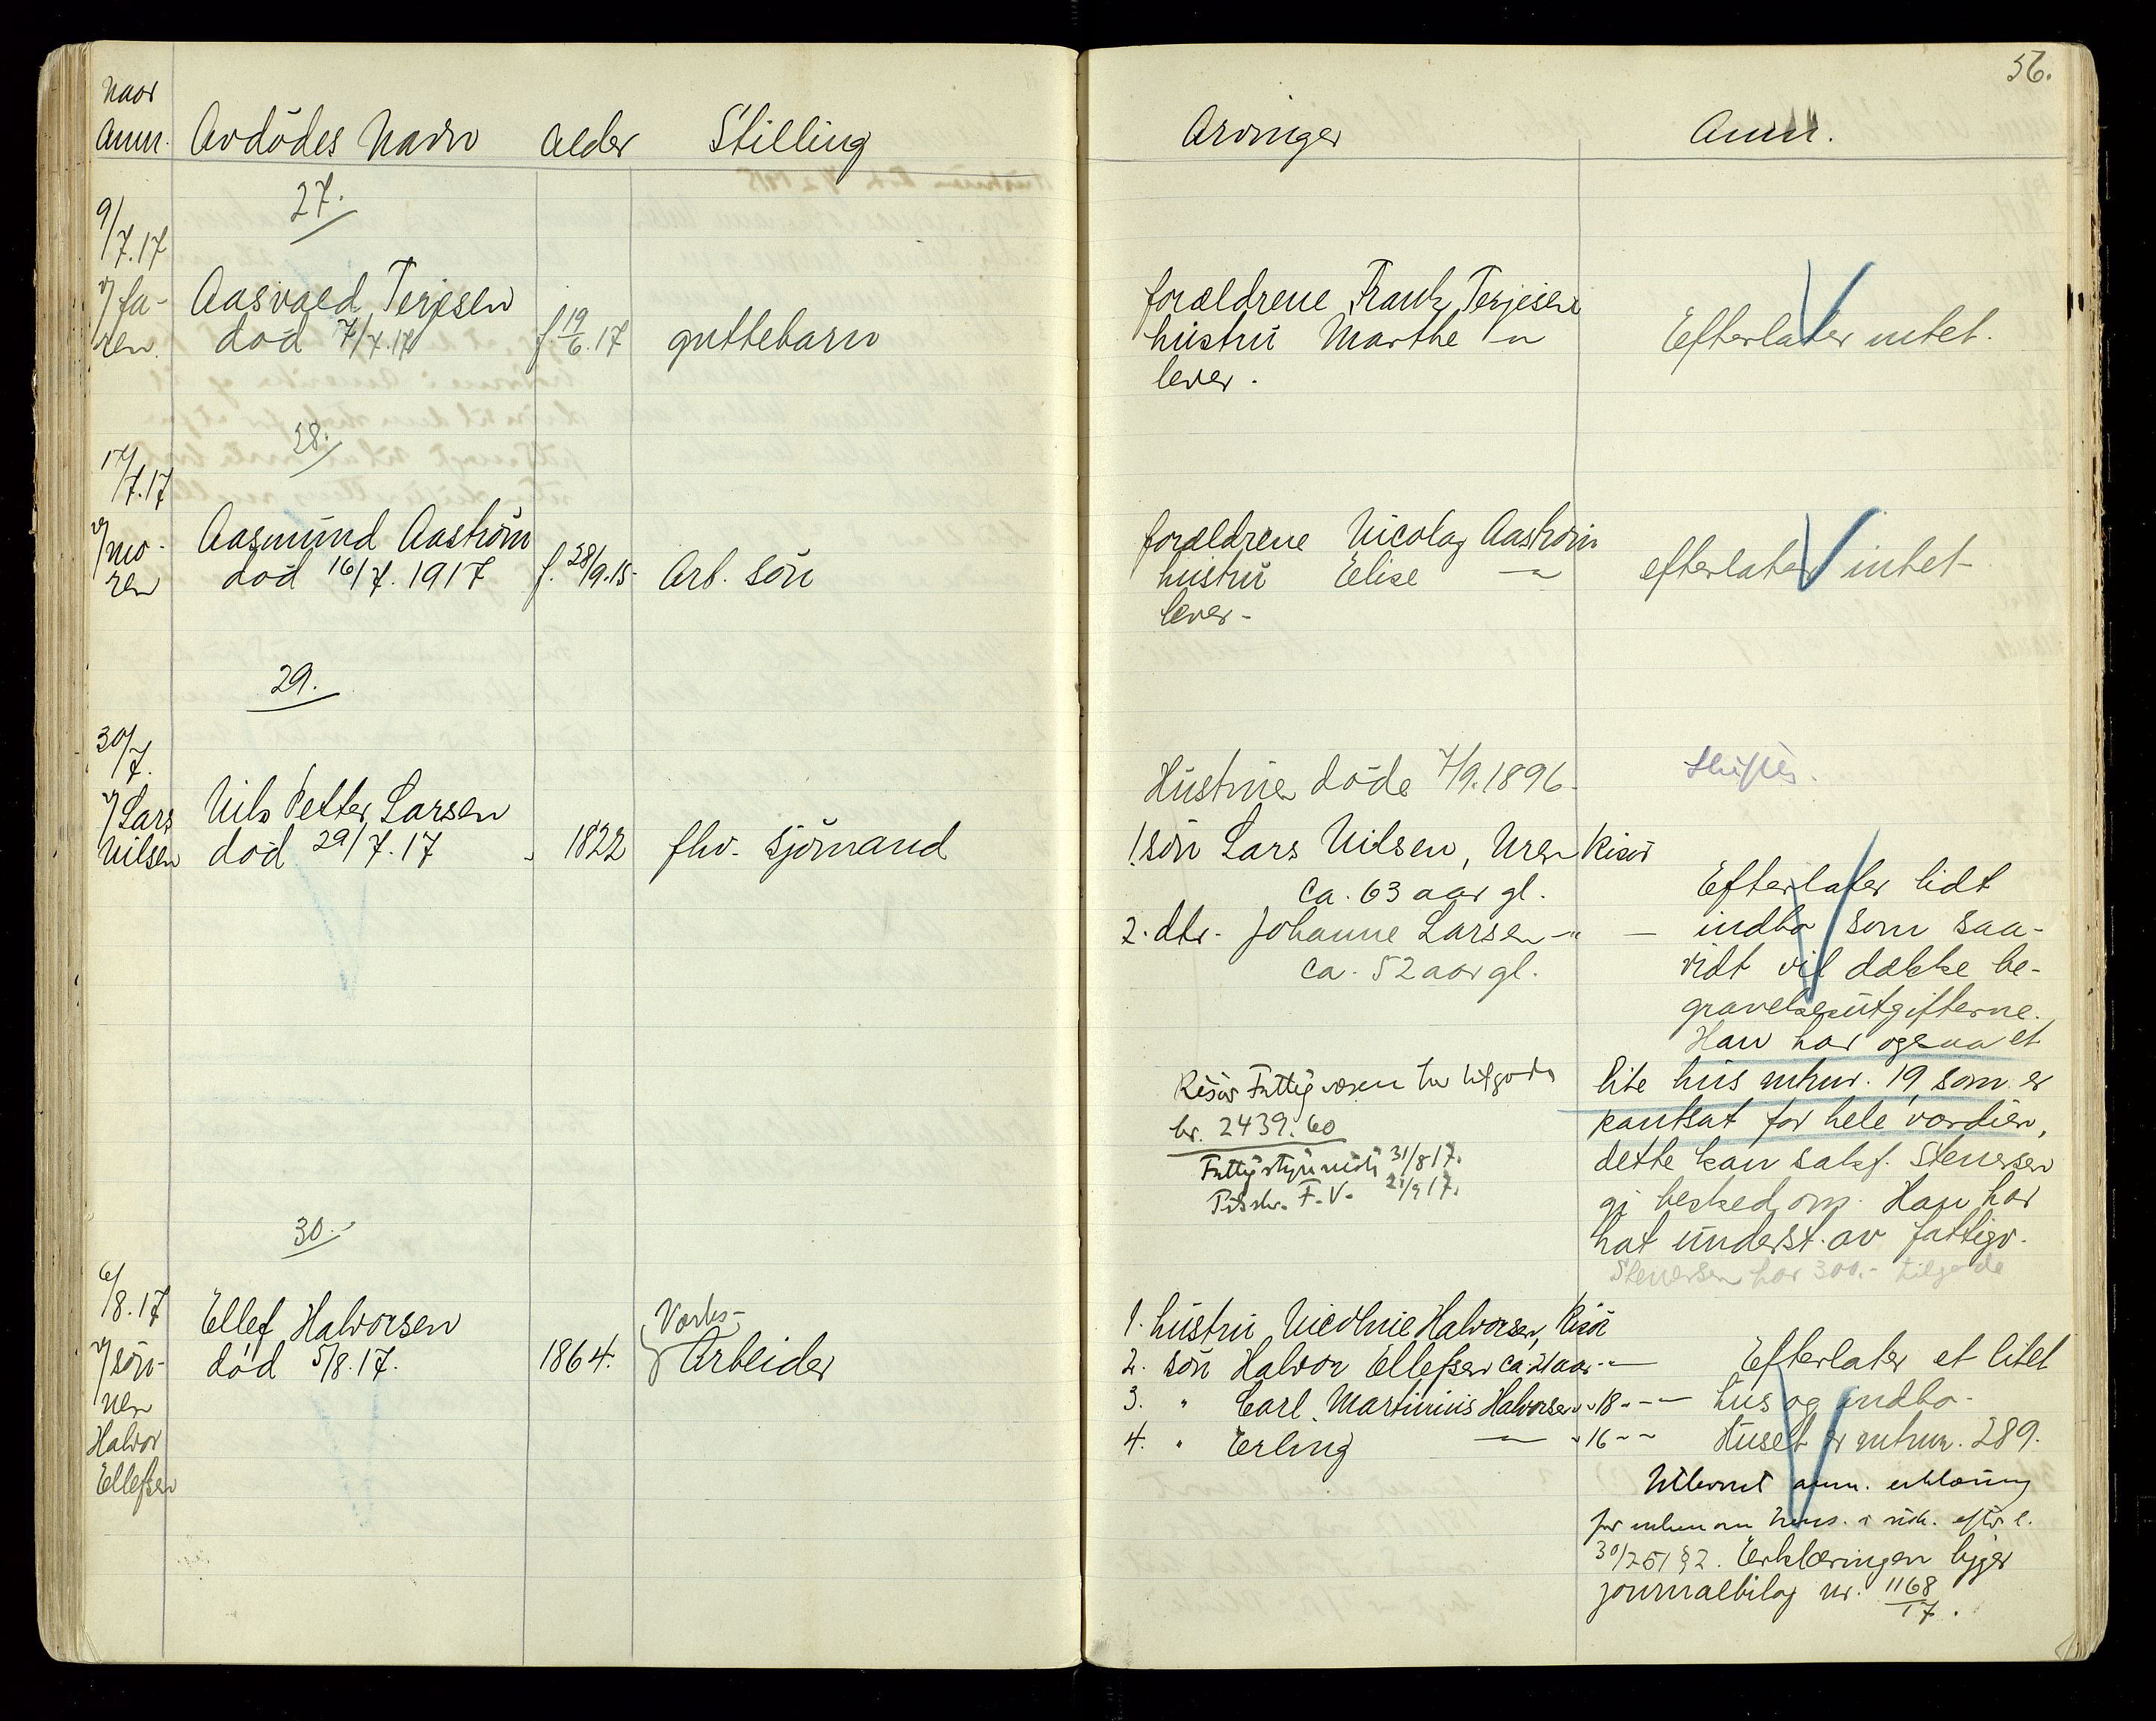 56.
Naar
Anm. Avdödes Navn Alder Stilling Arvinger Anm.
27.
9/7.17
v/ fa-
ren
Aasvald Terjesen
död 7/7.17
f 19/6.17
guttebarn
forældrene Frank Terjesen
hustru Marthe —"—
lever.
Efterlater intet.
28.
17/7.17
v/ mo-
ren
Aasmund Aaström
död 16/7.1917
f. 28/9.15-
Arb. sön
forældrene Nicolay Aaström
hustru Elise —"—
lever-
efterlater intet-
29.
30/7.
v/ Lars
Nilsen
Nils Petter Larsen
död 29/7.17
1822
fhv. sjömand
Hustruen döde 7/9.1896-
1. sön Lars Nilsen, Uren Risör
ca. 63 aar gl.
2. dtr. Johanne Larsen -"- —
ca. 52 aar gl.
Risör Fattigvæsen har tilgode
kr. 2439.60
31/8 17.
F.V. 21/9 17.
Skiftes.
Efterlater lidt
indbo som saa-
vidt vil dække be-
gravelsesutgifterne.
Han har ogsaa et
lite hus mtnr. 19, som er
pantsat for hele værdien,
dette kan sakf. Stenersen
gi besked om. Han har
hat underst. av fattigv.
Stenersen har 300.- tilgode
30.-
6/8.17
v/ sön-
nen
Halvor
Ellefsen
Ellef Halvorsen
död 5/8.17.
1864.
Verks-
Arbeider
1. hustru Nicoline Halvorsen, Risör
2. sön Halvor Ellefsen ca. 21 aar -"-
3. " Carl Martinius Halvorsen " 18 - - —
4. " Erling —"— " 16 - -
Efterlater et litet
hus og indbo-
Huset er mtnr. 289.
Utlevert anm. erklæring
for enken om hens. i usk. efter l.
30/7 51 § 2. Erklæringen ligger
journalbilag nr. 1168/17.